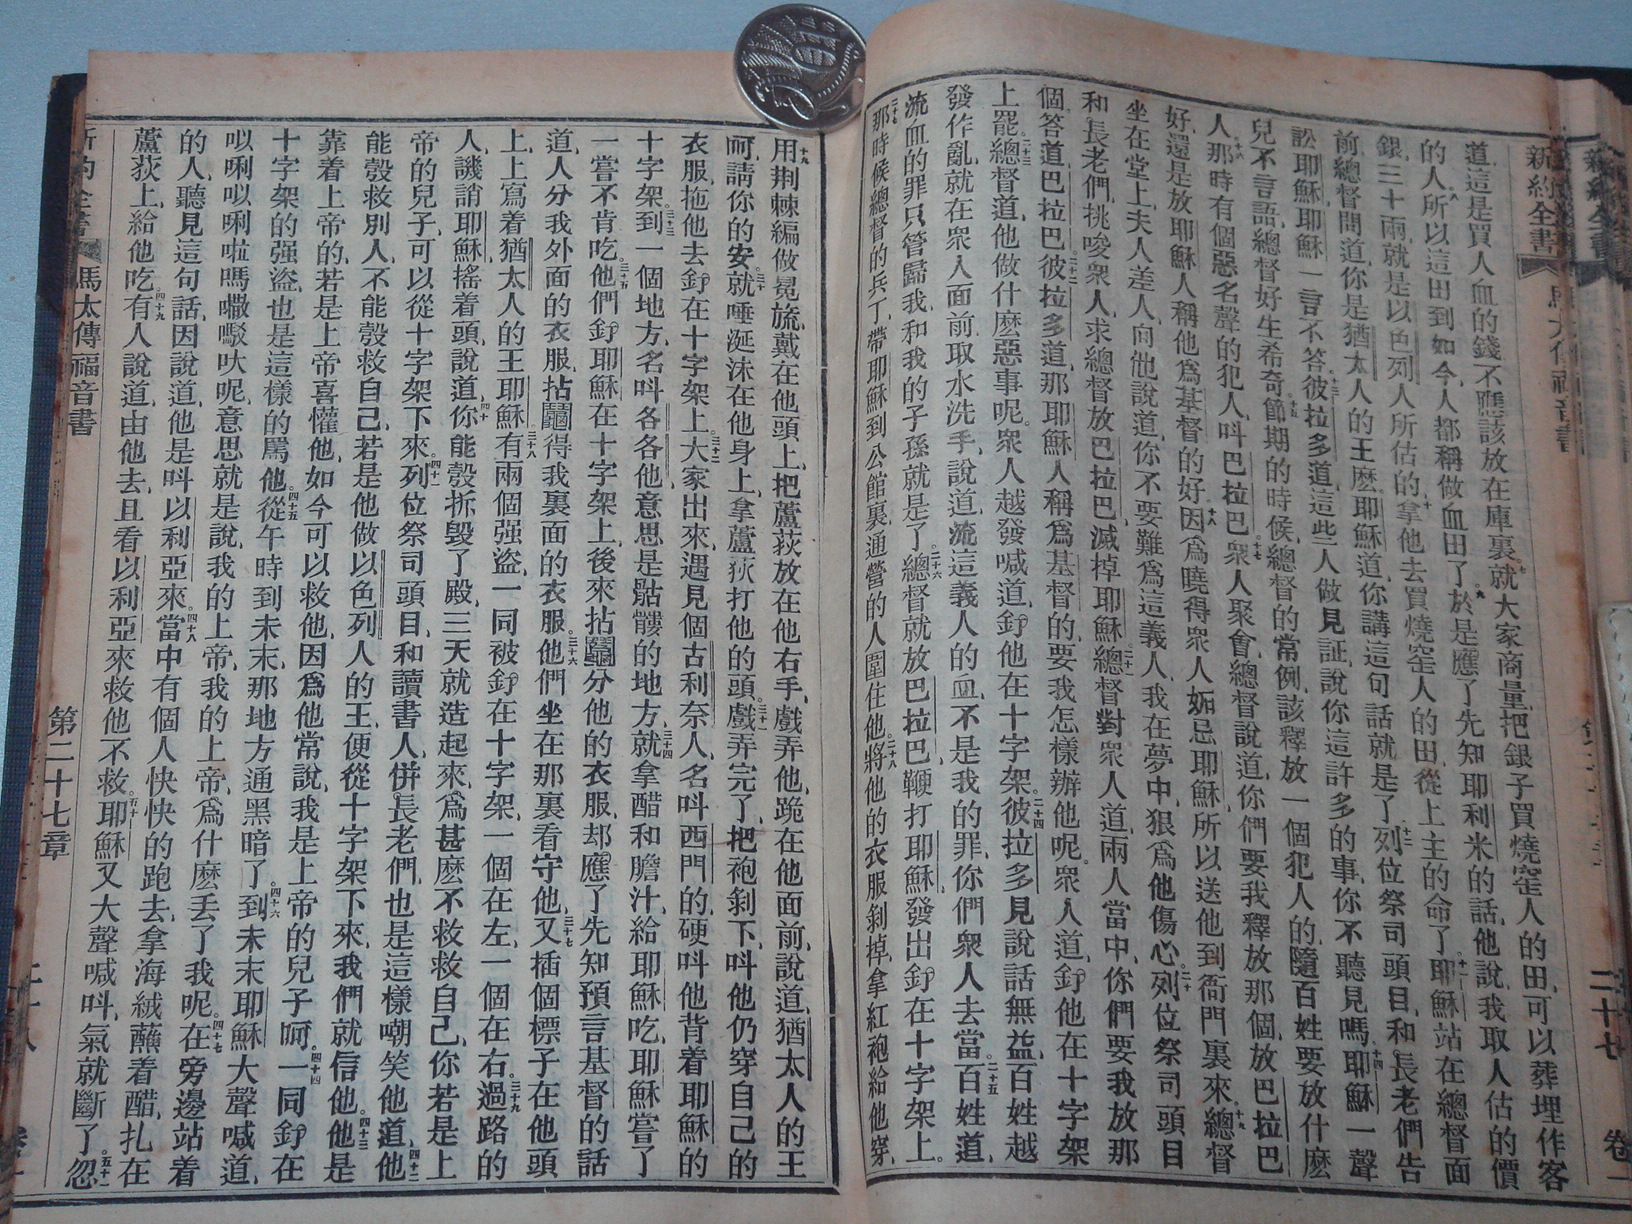 新約全書 二十七 卷一
道、這是買人血的錢、不應該放在庫裏。七就大家商量、把銀子買燒窑人的田、可以葬埋作客
的人。八所以這田到如今、人都稱做血田了。九於是應了先知耶利米的話、他說、我取人估的價
銀、三十兩、就是以色列人所估的、十拿他去買燒窑人的田、從上主的命了。十一耶穌站在總督面
前、總督問道、你是猶太人的王麽、耶穌道、你講這句話就是了。十二列位祭司頭目、和長老們告
訟耶穌、耶穌一言不答。十三彼拉多道、這些人做見証、說你這許多的事、你不聽見嗎。十四耶穌一聲
兒不言語、總督好生希奇。十五節期的時候、總督的常例、該釋放一個犯人的、隨百姓要放什麽
人。十六那時有個惡名聲的犯人、呌巴拉巴。十七衆人聚會、總督說道、你們要我釋放那個、放巴拉巴
好、還是放耶穌、人稱他爲基督的好。十八因爲曉得衆人妬忌耶穌、所以送他到衙門裏來。十九總督
坐在堂上、夫人差人向他說道、你不要難爲這義人、我在夢中、狠爲他傷心。二十列位祭司頭目
和長老們、挑唆衆人、求總督放巴拉巴、滅掉耶穌。二十一總督對衆人道、兩人當中、你們要我放那
個、答道、巴拉巴。二十二彼拉多道、那耶穌、人稱爲基督的、要我怎樣辦他呢。衆人道、釘他在十字架
上罷。二十三總督道、他做什麽惡事呢。衆人越發喊道、釘他在十字架。二十四彼拉多見說話無益、百姓越
發作亂、就在衆人面前、取水洗手、說道、流這義人的血、不是我的罪、你們衆人去當。二十五百姓道、
流血的罪、只管歸我、和我的子孫就是了。二十六總督就放巴拉巴、鞭打耶穌、發出釘在十字架上。
二十七那時候、總督的兵丁、帶耶穌到公館裏、通營的人圍住他。二十八將他的衣服剝掉、拿紅袍給他穿、
十九用荆棘編做冕旒、戴在他頭上、把蘆荻放在他右手、戲弄他、跪在他面前、說道、猶太人的王
呵、請你的安。三十就唾涎沫在他身上、拿蘆荻打他的頭。三十一戲弄完了、把袍剝下、呌他仍穿自己的
衣服、拖他去釘在十字架上。三十二大家出來、遇見個古利奈人、名呌西門的、硬呌他背着耶穌的
十字架。三十三到一個地方、名呌各各他、意思是骷髏的地方、三十四就拿醋和膽汁、給耶穌吃、耶穌嘗了
一嘗、不肯吃。三十五他們釘耶穌在十字架上、後來拈鬮分他的衣服、却應了先知預言基督的話
道、人分我外面的衣服、拈鬮得我裏面的衣服。三十六他們坐在那裏看守他、三十七又插個標子在他頭
上、上寫着猶太人的王耶穌。三十八有兩個强盜、一同被釘在十字架、一個在左、一個在右。三十九過路的
人、譏誚耶穌、搖着頭、說道、四十你能彀折毀了殿、三天就造起來、爲甚麽不救救自己、你若是上
帝的兒子、可以從十字架下來。四十一列位祭司頭目、和讀書人、併長老們、也是這樣嘲笑他道、四十二他
能彀救別人、不能彀救自己、若是他做以色列人的王、便從十字架下來、我們就信他。四十三他是
靠着上帝的、若是上帝喜懽他、如今可以救他、因爲他常說、我是上帝的兒子呵。四十四一同釘在
十字架的强盜、也是這樣的罵他。四十五從午時到未末、那地方通黑暗了。四十六到未末、耶穌大聲喊道、
㕽唎㕽唎啦嗎㗶嘙吠呢、意思就是說、我的上帝、我的上帝、爲什麽丢了我呢。四十七在旁邊站着
的人、聽見這句話、因說道、他是呌以利亞來。四十八當中有個人快快的跑去、拿海絨蘸着醋、扎在
蘆荻上、給他吃。四十九有人說道、由他去、且看以利亞來救他不救。五十耶穌又大聲喊呌、氣就斷了。五十一忽
新約全書 馬太傳福音書 第二十七章 二十八